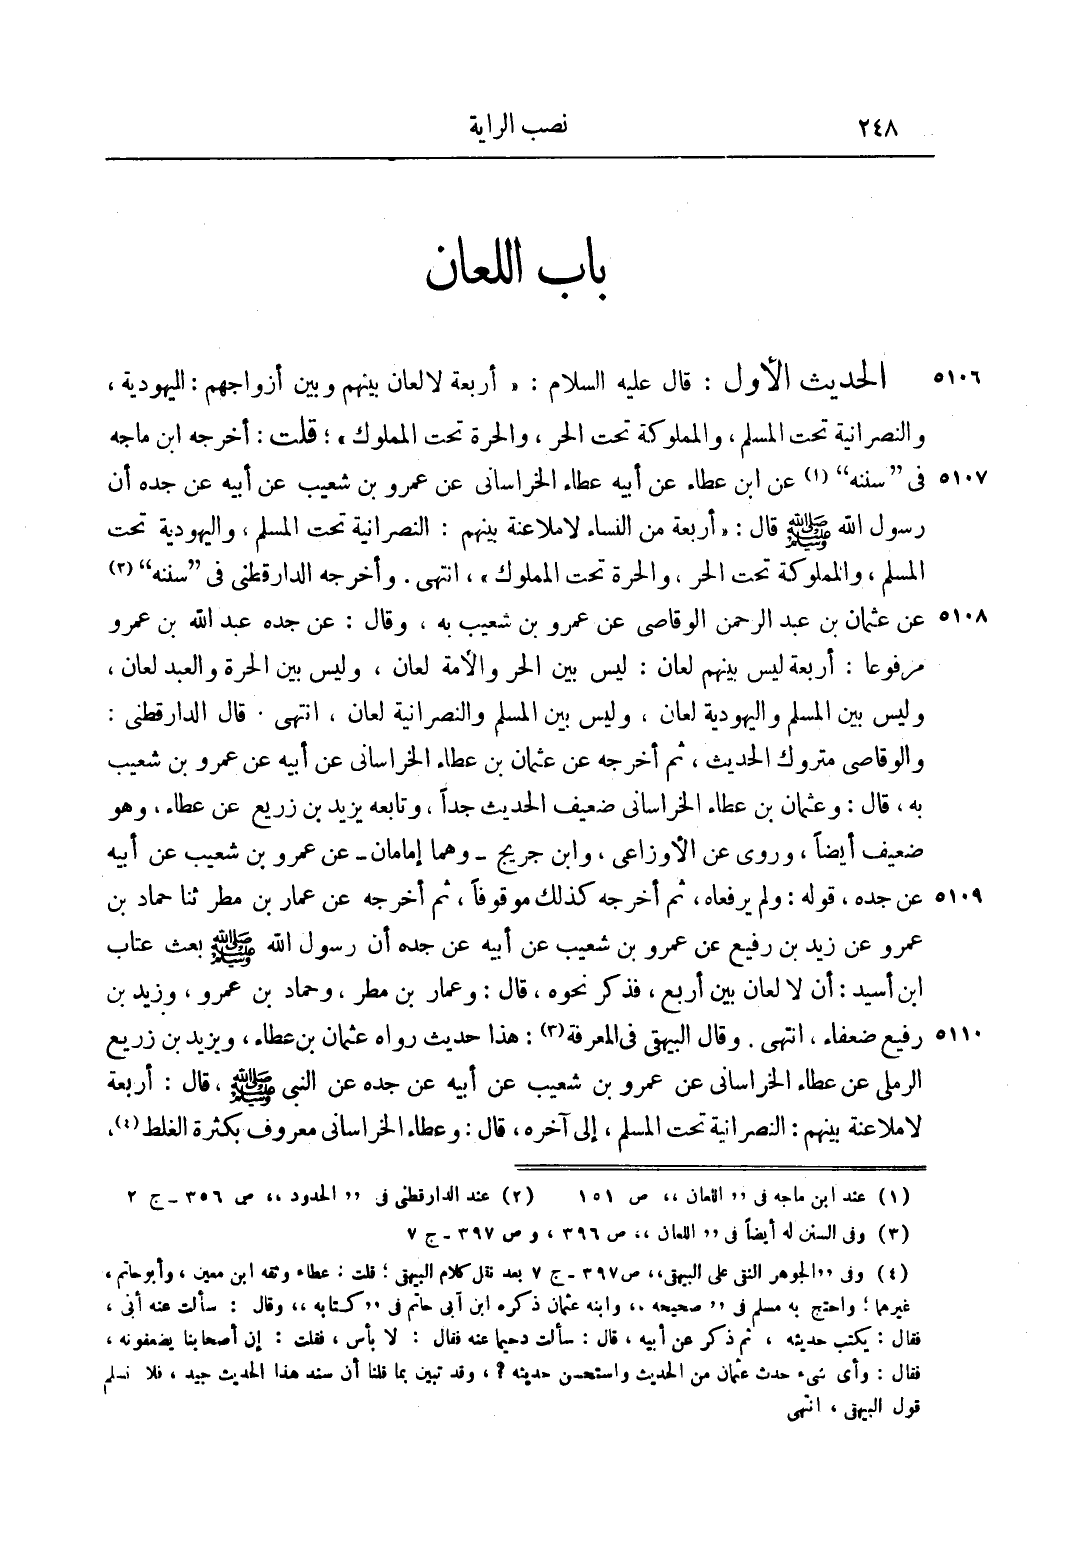 ٢٤٨ نصب الراية
باب اللعان
٥١٠٦ الحديث الأول : قال عليه السلام : « أربعة لا لعان بينهم وبين أزواجهم : اليهودية ،
والنصرانية تحت المسلم ، والمملوكة تحت الحر ، والحرة تحت المملوك » ؛ قلت : أخرجه ابن ماجه
٥١٠٧ فى ”سننه“ (١) عن ابن عطاء عن أبيه عطاء الخراسانى عن عمرو بن شعيب عن أبيه عن جده أن
رسول الله ﷺ قال : « أربعة من النساء لا ملاعنة بينهم : النصرانية تحت المسلم ، واليهودية تحت
المسلم ، والمملوكة تحت الحر ، والحرة تحت المملوك » ، انتهى . وأخرجه الدارقطنى فى ”سننه“ (٢)
٥١٠٨ عن عثمان بن عبد الرحمن الوقاصى عن عمرو بن شعيب به ، وقال : عن جده عبد الله بن عمرو
مرفوعا : أربعة ليس بينهم لعان : ليس بين الحر والأمة لعان ، وليس بين الحرة والعبد لعان ،
وليس بين المسلم واليهودية لعان ، وليس بين المسلم والنصرانية لعان ، انتهى . قال الدارقطنى :
والوقاصى متروك الحديث ، ثم أخرجه عن عثمان بن عطاء الخراسانى عن أبيه عن عمرو بن شعيب
به ، قال : وعثمان بن عطاء الخراسانى ضعيف الحديث جداً ، وتابعه يزيد بن زريع عن عطاء ، وهو
ضعيف أيضاً ، وروى عن الأوزاعى ، وابن جريج ــ وهما إمامان ــ عن عمرو بن شعيب عن أبيه
٥١٠٩ عن جده ، قوله : ولم يرفعاه ، ثم أخرجه كذلك موقوفاً ، ثم أخرجه عن عمار بن مطر ثنا حماد بن
عمرو عن زيد بن رفيع عن عمرو بن شعيب عن أبيه عن جده أن رسول الله ﷺ بعث عتاب
ابن أسيد : أن لا لعان بين أربع ، فذكر نحوه ، قال : وعمار بن مطر ، وحماد بن عمرو ، وزيد بن
٥١١٠ رفيع ضعفاء ، انتهى . وقال البيهقى فى المعرفة (٣) : هذا حديث رواه عثمان بن عطاء ، ويزيد بن زريع
الرملى عن عطاء الخراسانى عن عمرو بن شعيب عن أبيه عن جده عن النبى ﷺ ، قال : أربعة
لا ملاعنة بينهم : النصرانية تحت المسلم ، إلى آخره ، قال : وعطاء الخراسانى معروف بكثرة الغلط (٤) ،
(١) عند ابن ماجه فى ,, اللعان ،، ص ١٥١ (٢) عند الدارقطنى فى ,, الحدود ،، ص ٣٥٦ ــ ج ٢
(٣) وفى السنن له أيضاً فى ,, اللعان ،، ص ٣٩٦ ، و ص ٣٩٧ ــ ج ٧
(٤) وفى ,,الجوهر النقى على البيهقى،، ص ٣٩٧ ــ ج ٧ بعد نقل كلام البيهقى ؛ قلت : عطاء وثقه ابن معين ، وأبو حاتم ،
غيرهما ؛ واحتج به مسلم فى ,, صحيحه ،، وابنه عثمان ذكره ابن أبى حاتم فى ,, كتابه ،، وقال : سألت عنه أبى ،
فقال : يكتب حديثه ، ثم ذكر عن أبيه ، قال : سألت دحيما عنه فقال : لا بأس ، فقلت : إن أصحابنا يضعفونه ،
فقال : وأى شىء حدث عثمان من الحديث واستحسن حديثه ؟ ، وقد تبين بما قلنا أن سند هذا الحديث جيد ، فلا نسلم
قول البيهقى ، انتهى